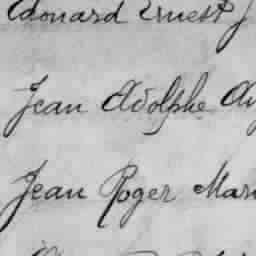 Edouard Ernest J
Jean Adolphe Au
Jean Roger Mari